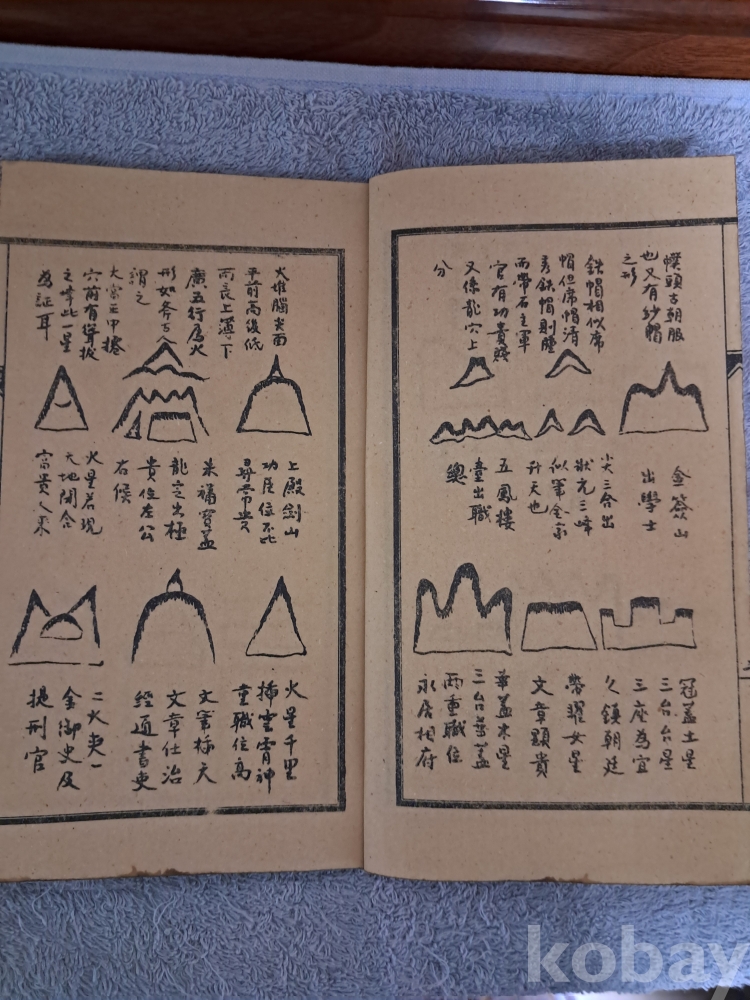 幞頭古朝服
也又有紗帽
之形
鉄帽相似席
帽但席帽清
秀鉄帽則腫
而帶石主軍
官有功貴賤
又係龍穴上
分
金盔山
出學士
尖三合出
狀元三峰
似筆全家
升天也
五鳳樓
臺出職
總
冠蓋土星
三台台星
三座為宜
久鎮朝廷
榮耀女星
文章顕貴
華蓋木星
三台華蓋
兩重職位
永居相府
火堆腦尖面
平前高後低
而長上薄下
廣五行属火
形如
謂之
穴前有聳拔
之峰此一星
為証耳
上殿劍山
功臣位不比
尋常貴
来福寶蓋
龍之出極
貴位左公
右侯
火星若現
天地開合
富貴人来
火星千里
揷雲霄神
童職位高
文筆标天
文章仕治
經通書吏
二火夹一
金御史及
提刑官
kobay